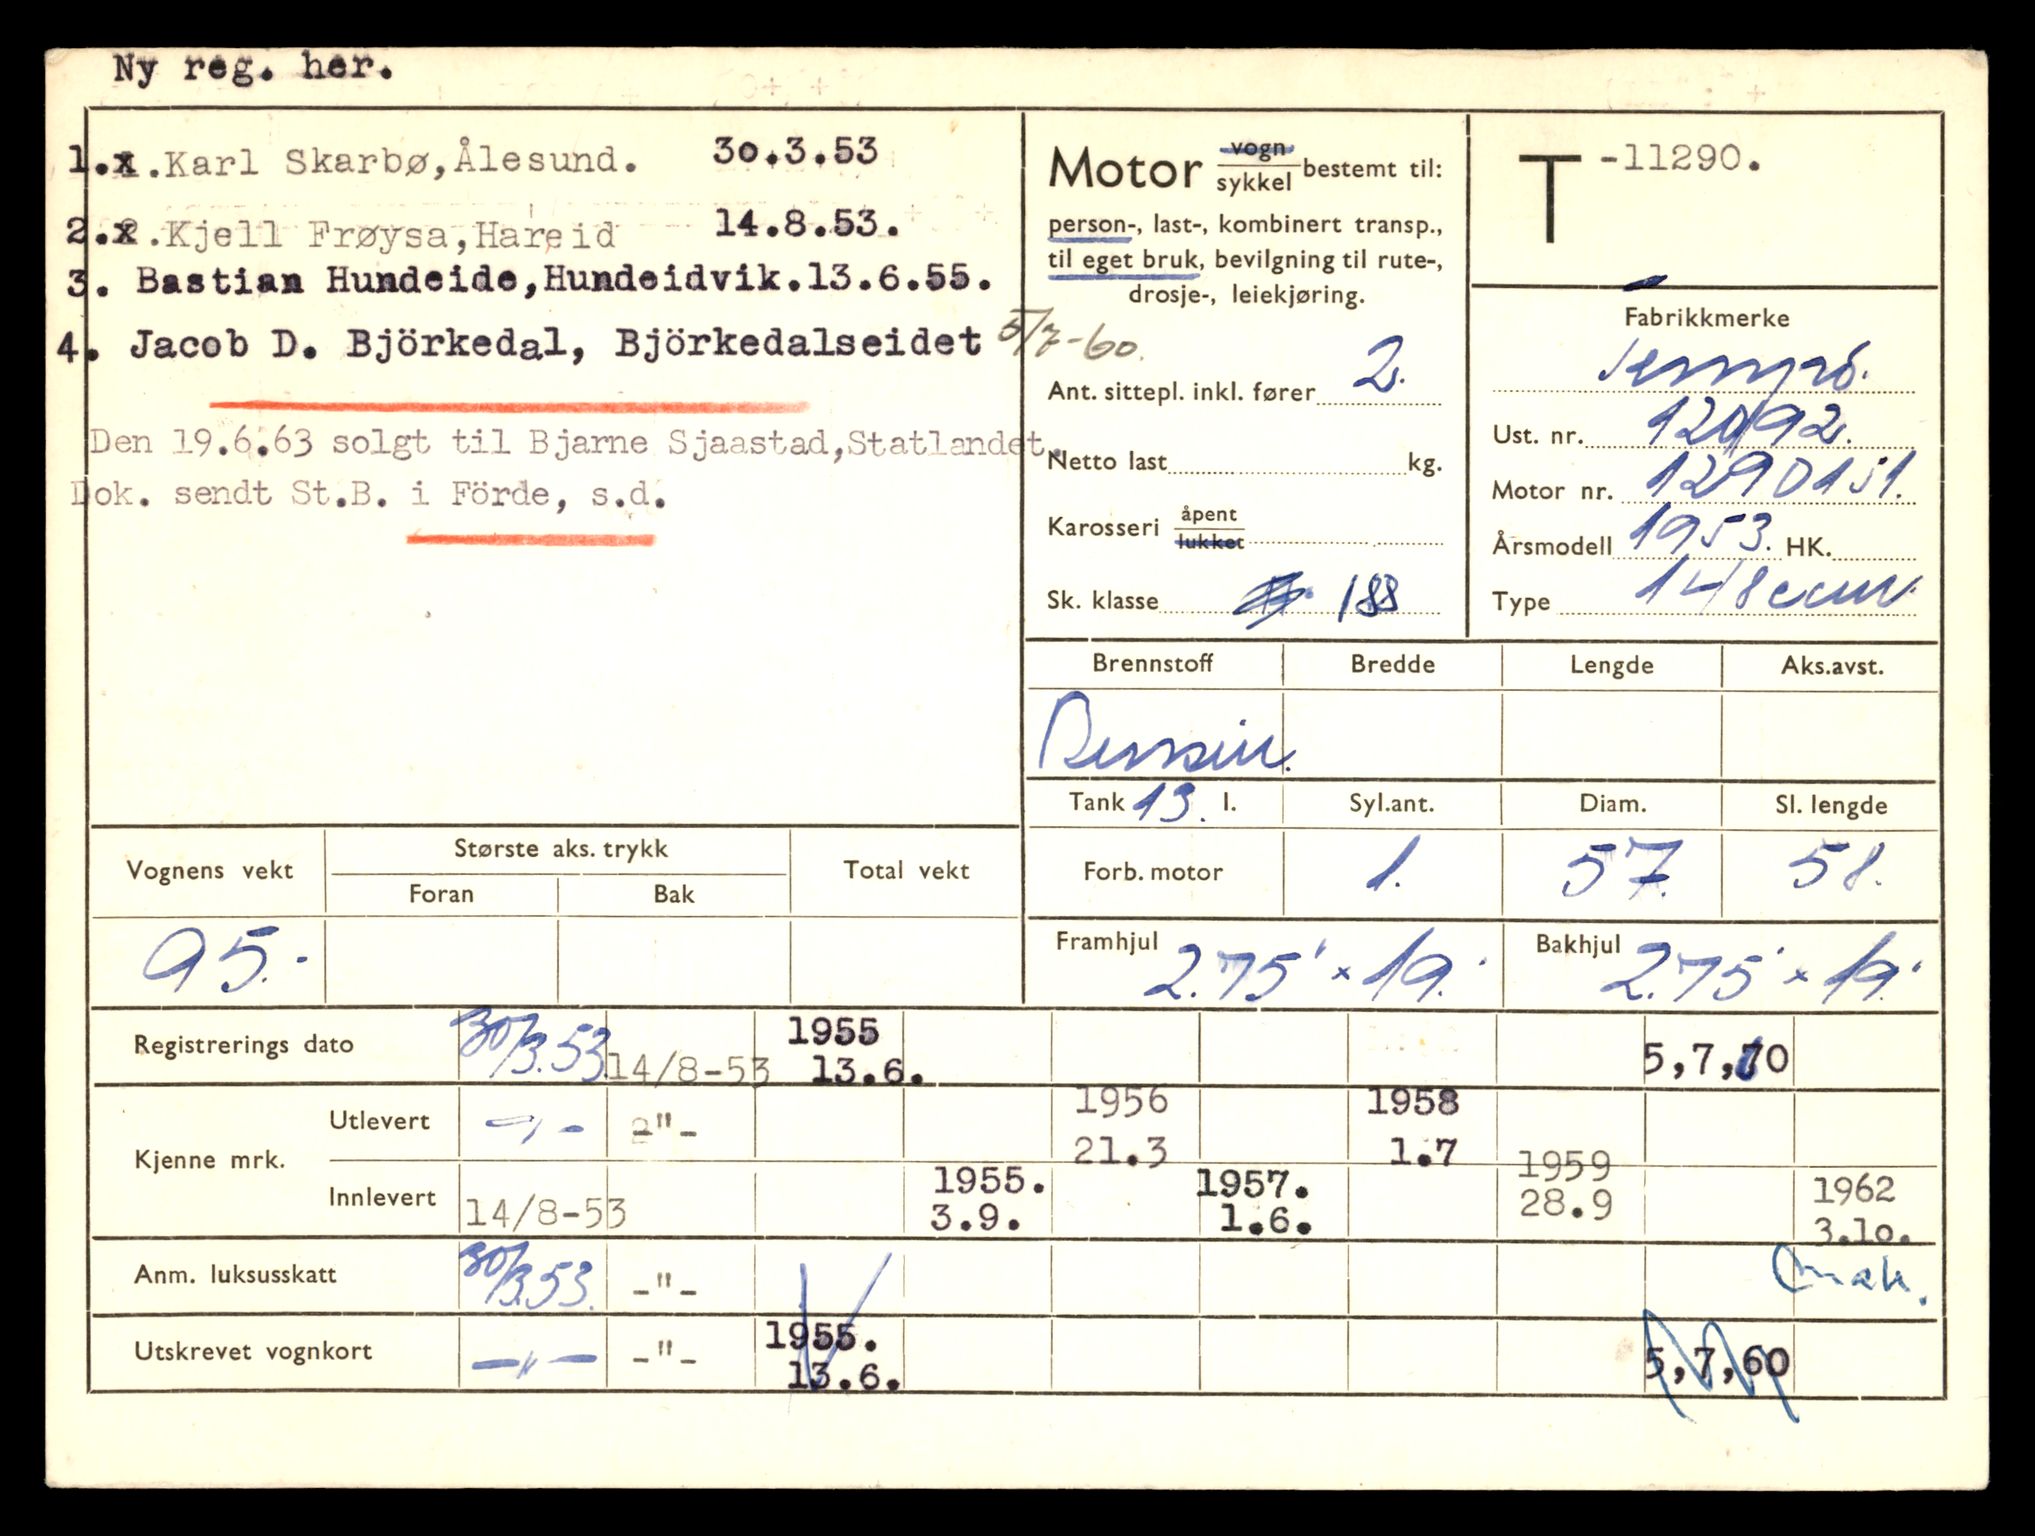 Ny reg. her.
1.x.Karl Skarbø,Ålesund. 30.3.53
2.x.Kjell Frøysa,Hareid 14.8.53.
3. Bastian Hundeide,Hundeidvik.13.6.55.
4. Jacob D. Björkedal, Björkedalseidet 5/7-60.
Den 19.6.63 solgt til Bjarne Sjaastad,Statlandet.
Dok. sendt St.B. i Förde, s.d.
Motor vogn sykkel bestemt til:
person-, last-, kombinert transp.,
til eget bruk, bevilgning til rute-,
drosje-, leiekjøring.
Ant. sittepl. inkl. fører 2.
Netto last kg.
Karosseri åpent lukket
Sk. klasse 188
T -11290.
Fabrikkmerke
Tempo.
Ust. nr. 120192.
Motor nr. 1290151.
Årsmodell 1953. HK.
Type 148 ccm.
Brennstoff Bredde Lengde Aks.avst.
Bensin.
Tank 13. l. Syl.ant. Diam. Sl. lengde
Forb. motor 1. 57. 58.
Framhjul 2.75" x 19." Bakhjul 2.75" x 19."
Vognens vekt Største aks. trykk Total vekt
Foran Bak
95.-
Registrerings dato 30/3.53 14/8-53 1955 13.6. 5,7,70
Kjenne mrk.
Utlevert -"- -"- 1956 21.3 1958 1.7
Innlevert 14/8-53 1955. 3.9. 1957. 1.6. 1959 28.9 1962 3.10.
Anm. luksusskatt 30/3.53. -"-
Utskrevet vognkort -"- -"- 1955. 13.6. 5,7,60